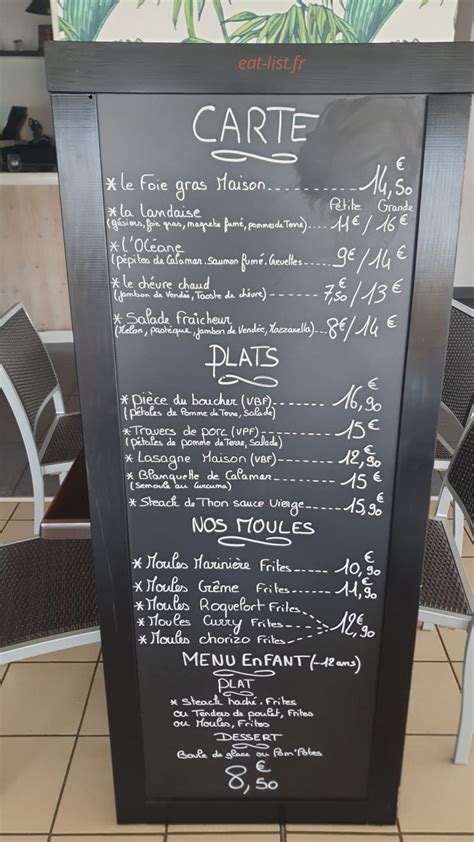 eat-list.fr
CARTE
* Le Foie gras Maison 14,50€
Petite Grande
* La Landaise 11€ / 16€
(gésiers, foie gras, magrets fumé, pommes de Terre)
* L'Océane 9€ / 14€
(pépites de Calamar, Saumon fumé, Crevettes
* Le chèvre chaud 7,50 / 13€
(jambon de Vendée, Toaste de chèvre)
* Salade Fraîcheur 8€ / 14€
(Melon, pastèque, jambon de Vendée, Mozzarella)
PLATS
* Pièce du boucher (VBF) 16,90€
(pétales de Pomme de Terre, Salade)
* Travers de porc (VPF) 15€
(pétales de pomme de Terre, Salade)
* Lasagne Maison (VBF) 12,90€
* Blanquette de Calamar 15€
(Semoule au curcuma)
* Steack de Thon sauce Vierge 15,90€
NOS MOULES
* Moules Marinière Frites 10,90€
* Moules Crème Frites 11,90€
* Moules Roquefort Frites
* Moules Curry Frites 12,90€
* Moules chorizo Frites
MENU EnFANT (-12 ans)
PLAT
* Steack haché, Frites
ou Tenders de poulet, Frites
ou Moules, Frites
DESSERT
Boule de glace ou Pom'Potes
8,50€